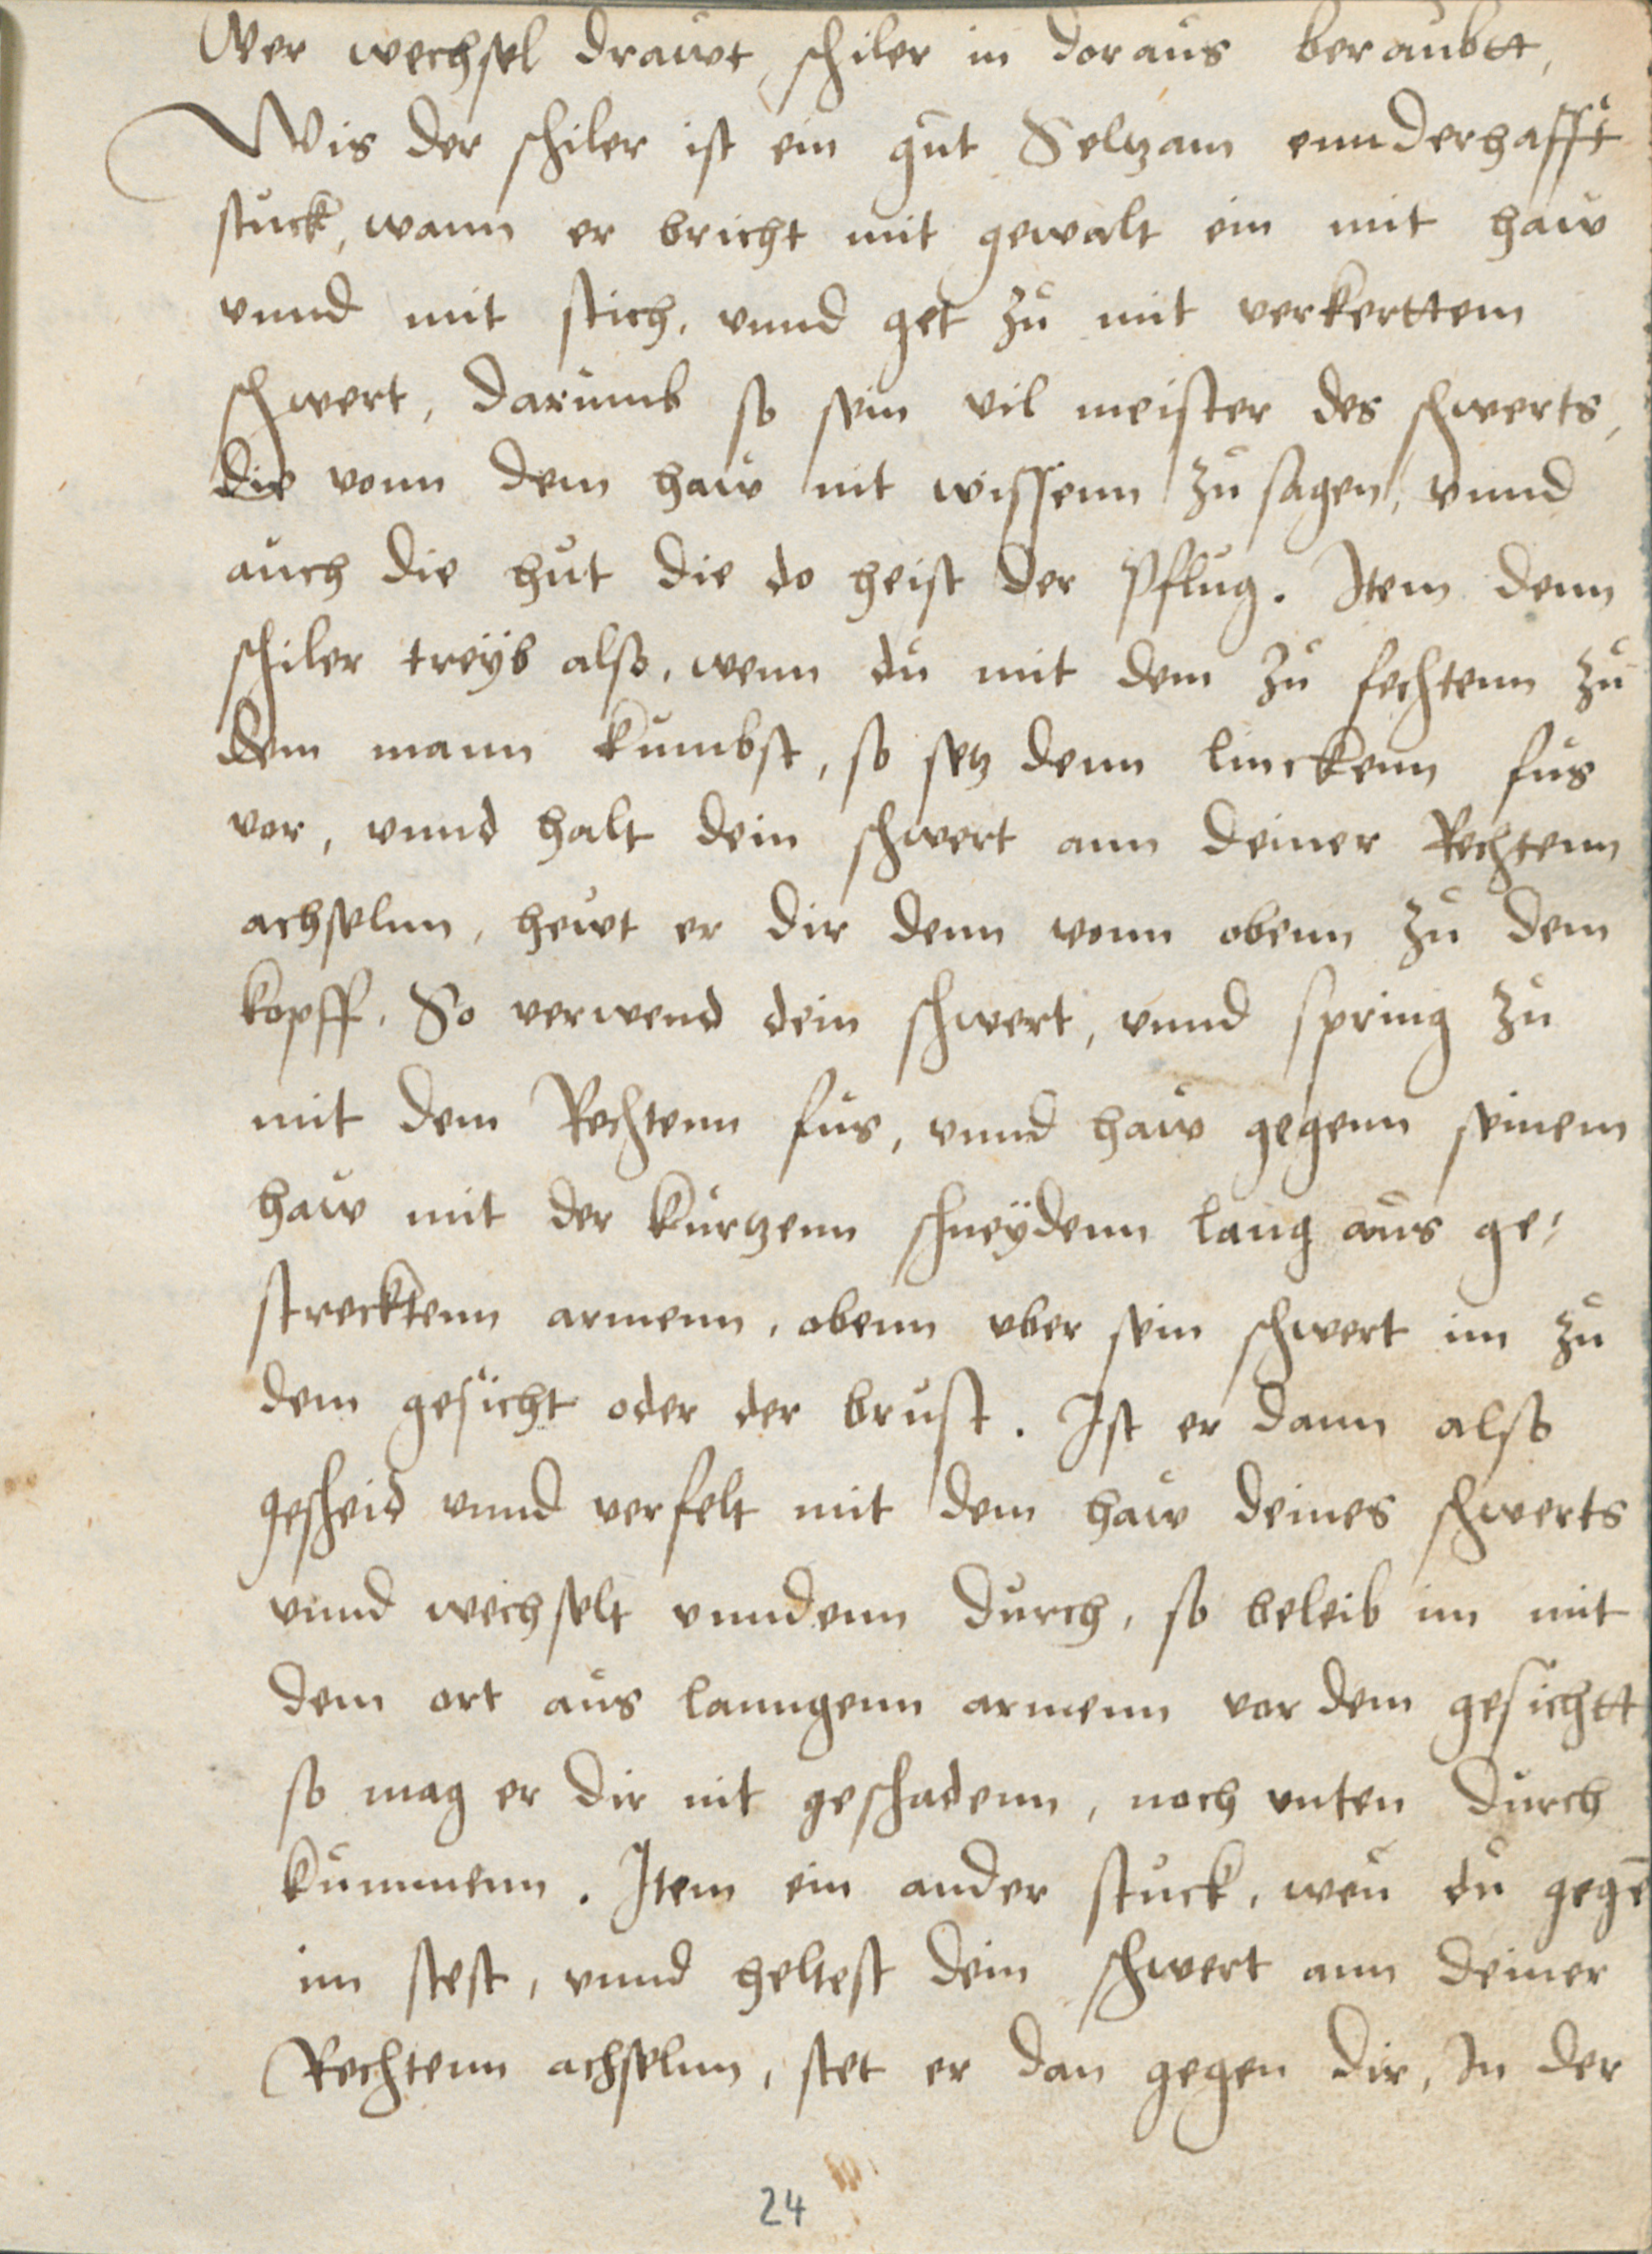 Wer wechsel drawt, schiler in doraus beraubtt,
Wis der schiler ist ein gut Seltzam ernnderhafft
stuck, wann er bricht mit gewalt ein mit haw
vnnd mit stich, vnnd get zu mit verkerttem
schwert, darumb so sein vil meister des schwerts,
die vonn dem haw nit wissenn zu sagen, vnnd
auch die hut die do heist der Pflug. Item denn
schiler treÿb also, wenn du mit dem zu fechtenn zu
dem mann kumbst, so setz denn linckenn fus
vor, vnnd halt dein schwert ann deiner Rechtenn
achselnn, hewt er dir denn vonn obenn zu dem
kopff. So verwend dein schwert, vnnd spring zu
mit dem Rechtenn fus, vnnd haw gegenn seinem
haw mit der kurtzenn schneÿdenn lang aus ge-
strecktenn armenn, obenn vber sein schwert im zu
dem gesicht oder der brust. Ist er dann also
gescheid vnnd verfelt mit dem haw deines schwerts
vnnd wechselt vnndenn durch, so beleib im mit
dem ort aus lanngenn armenn vor dem gesichtt
so mag er dir nit geschadenn, noch vnten durch
kummenn. Item ein ander stuck, wen̄ du gegē
im stest, vnnd heltest dein schwert ann deiner
Rechtenn achselnn, stet er dan gegen dir, In der
24